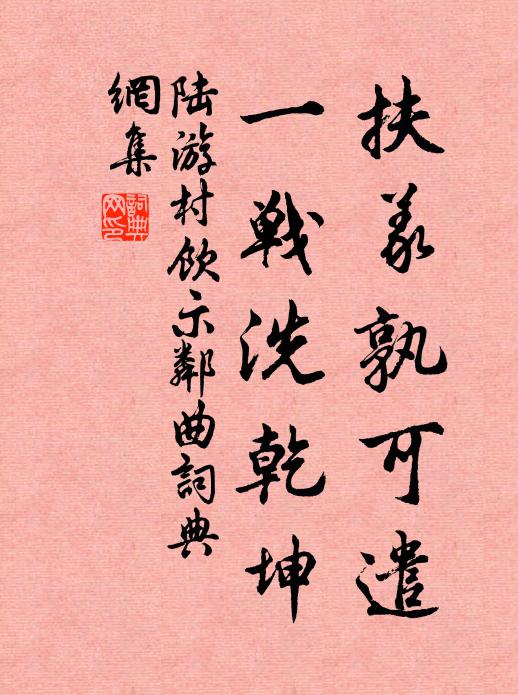 扶義孰可遣
一戰洗乾坤
陆游村飲示鄰曲詞典
網集
詞典
网印